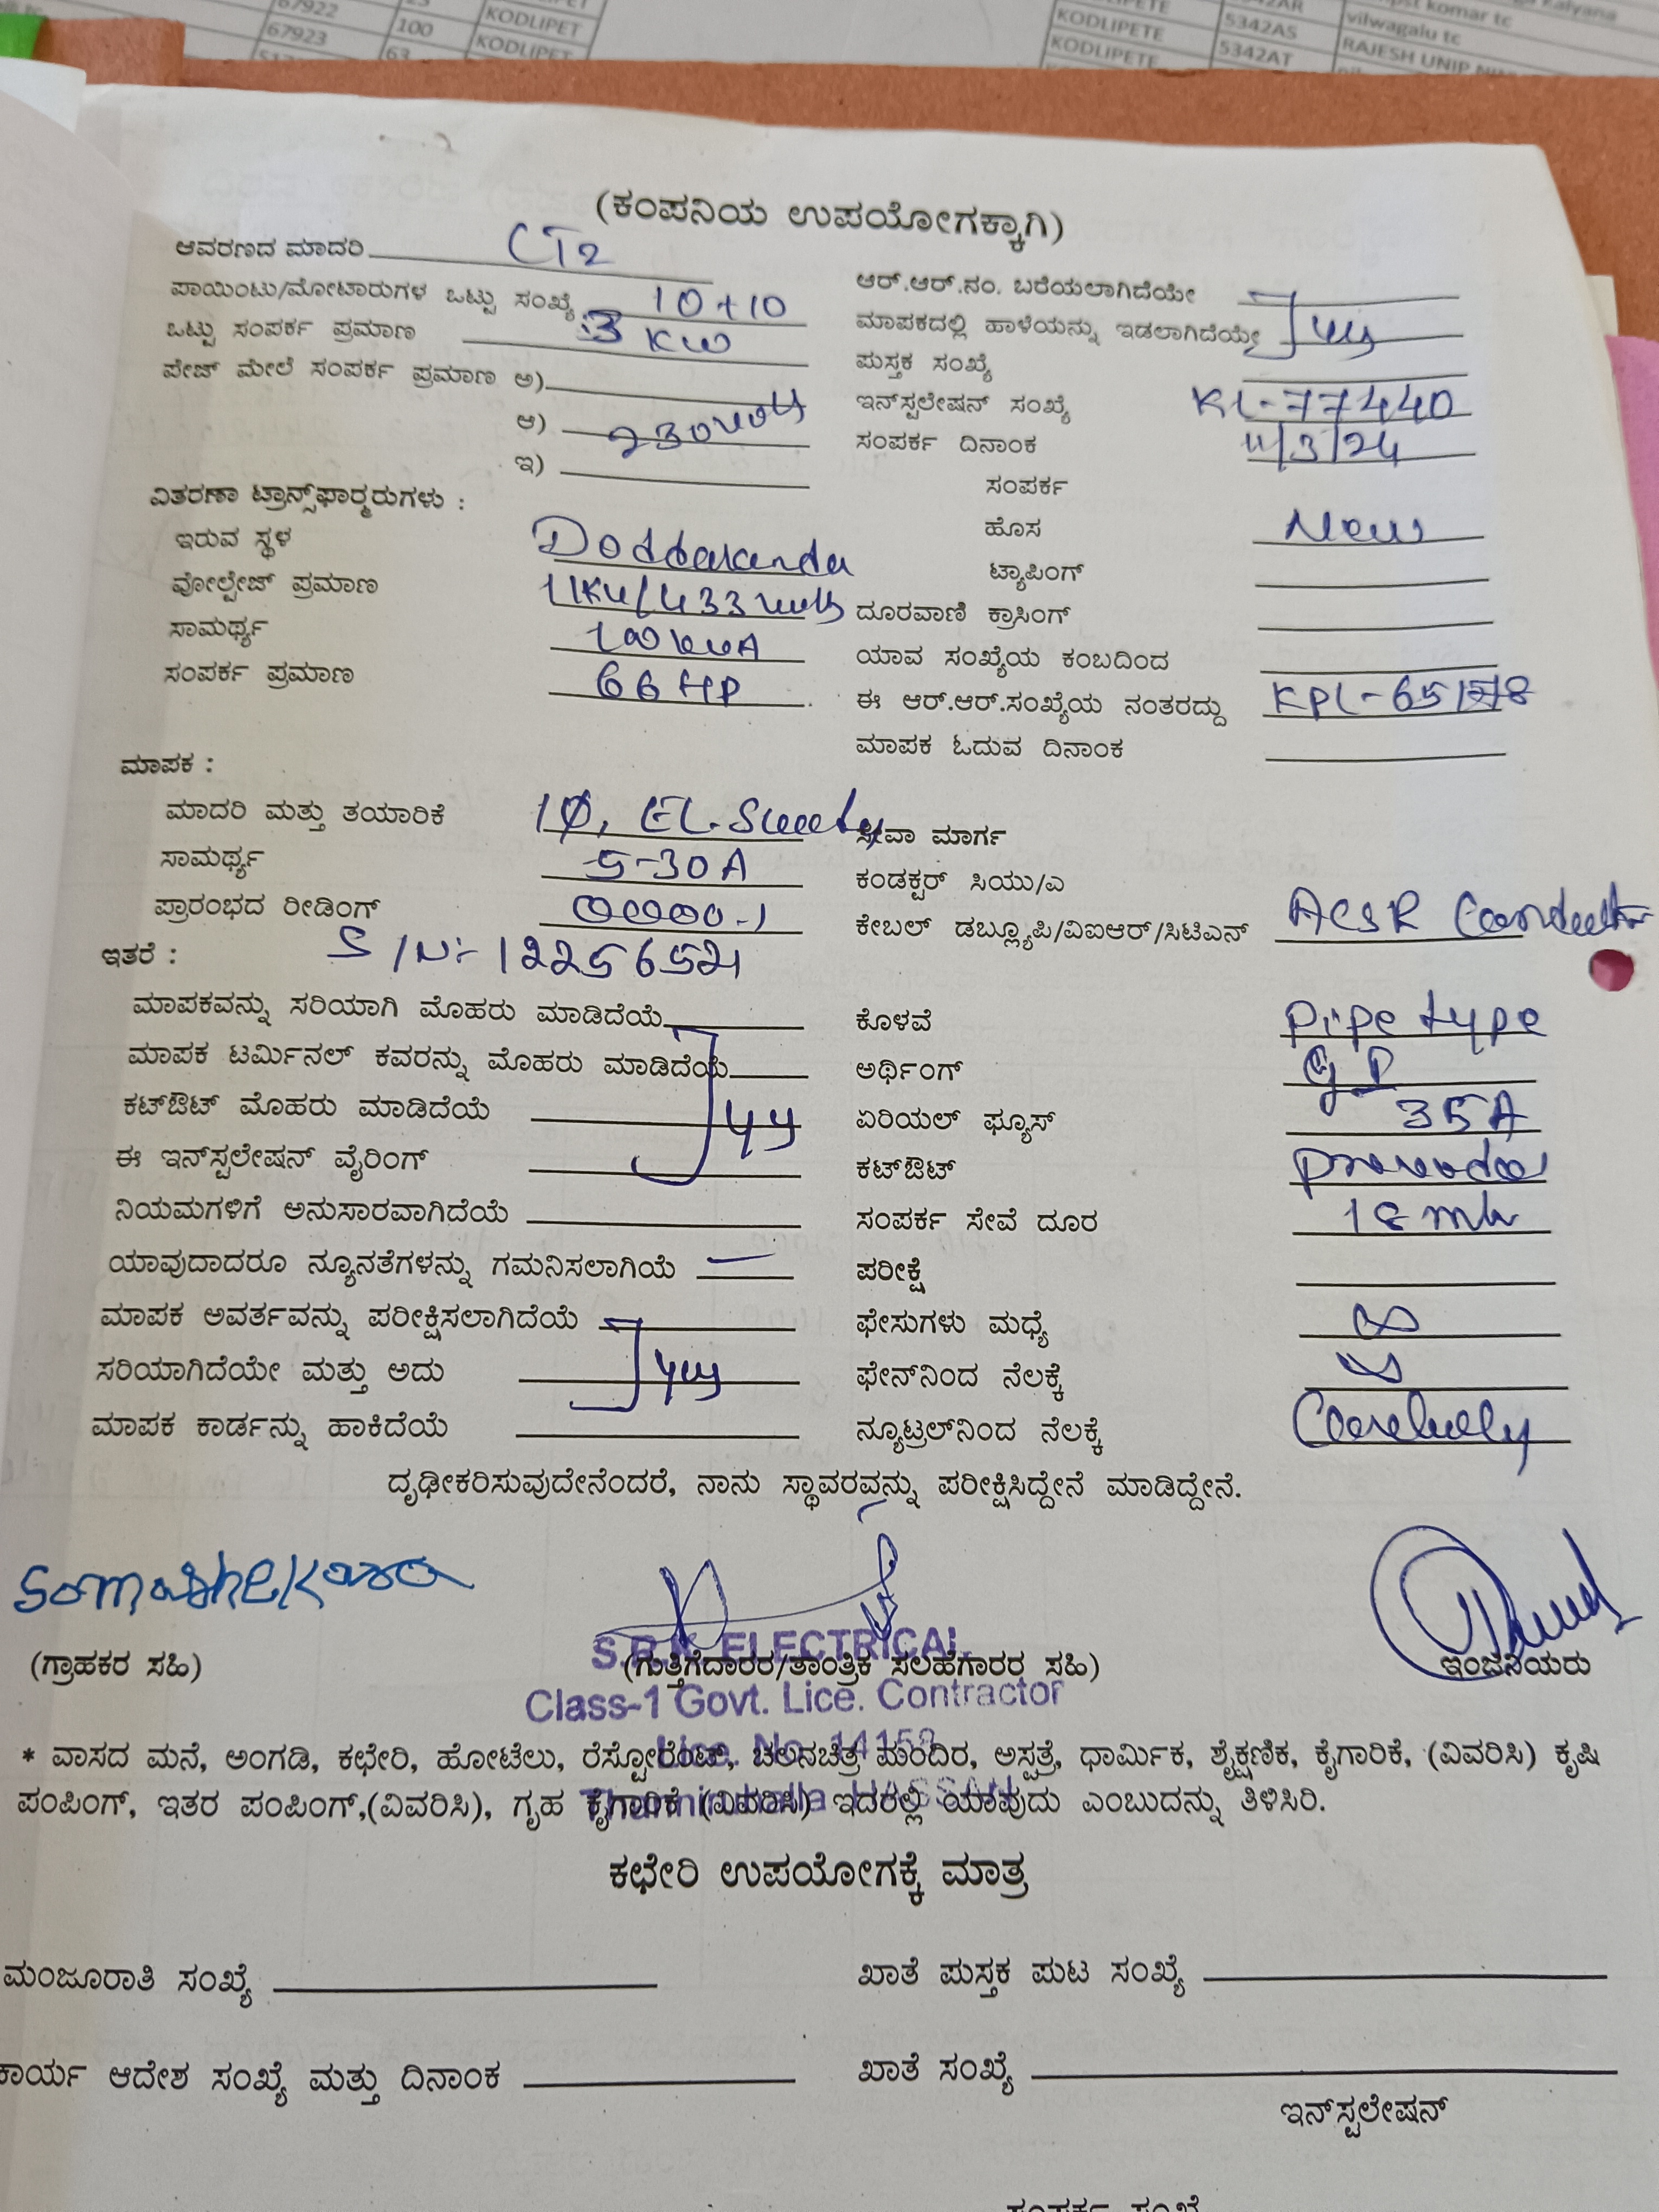 67922
KODLIPET
67923 100 KODLIPET
63
KODLIPETE 5342AS vilwagalu tc
KODLIPETE 5342AT RAJESH UNIP
(ಕಂಪನಿಯ ಉಪಯೋಗಕ್ಕಾಗಿ)
ಆವರಣದ ಮಾದರಿ CT2
ಪಾಯಿಂಟು/ಮೋಟಾರುಗಳ ಒಟ್ಟು ಸಂಖ್ಯೆ 10+10
ಒಟ್ಟು ಸಂಪರ್ಕ ಪ್ರಮಾಣ 3 KW
ಪೇಜ್ ಮೇಲೆ ಸಂಪರ್ಕ ಪ್ರಮಾಣ ಅ)
ಆ) 230 volt
ಇ)
ವಿತರಣಾ ಟ್ರಾನ್ಸ್‌ಫಾರ್‍ಮರುಗಳು :
ಇರುವ ಸ್ಥಳ
ವೋಲ್ಟೇಜ್ ಪ್ರಮಾಣ 11KV/433 volts
ಸಾಮರ್ಥ್ಯ 100 KVA
ಸಂಪರ್ಕ ಪ್ರಮಾಣ 66 HP
ಆರ್.ಆರ್.ನಂ. ಬರೆಯಲಾಗಿದೆಯೇ
ಮಾಪಕದಲ್ಲಿ ಹಾಳೆಯನ್ನು ಇಡಲಾಗಿದೆಯೇ yes
ಪುಸ್ತಕ ಸಂಖ್ಯೆ
ಇನ್‌ಸ್ಟಲೇಷನ್ ಸಂಖ್ಯೆ KL-77440
ಸಂಪರ್ಕ ದಿನಾಂಕ 11/3/24
ಸಂಪರ್ಕ
ಹೊಸ New
ಟ್ಯಾಪಿಂಗ್
ದೂರವಾಣಿ ಕ್ರಾಸಿಂಗ್
ಯಾವ ಸಂಖ್ಯೆಯ ಕಂಬದಿಂದ
ಈ ಆರ್.ಆರ್.ಸಂಖ್ಯೆಯ ನಂತರದ್ದು
ಮಾಪಕ ಓದುವ ದಿನಾಂಕ
ಮಾಪಕ :
ಮಾದರಿ ಮತ್ತು ತಯಾರಿಕೆ 1Ø,
ಸಾಮರ್ಥ್ಯ 5-30A
ಪ್ರಾರಂಭದ ರೀಡಿಂಗ್
ಇತರೆ : S/N:- 12256521
ಸೇವಾ ಮಾರ್ಗ
ಕಂಡಕ್ಟರ್ ಸಿಯು/ಎ
ಕೇಬಲ್ ಡಬ್ಲ್ಯೂಪಿ/ವಿಐಆರ್/ಸಿಟಿಎನ್ ACSR Conductor
ಮಾಪಕವನ್ನು ಸರಿಯಾಗಿ ಮೊಹರು ಮಾಡಿದೆಯೆ
ಮಾಪಕ ಟರ್ಮಿನಲ್ ಕವರನ್ನು ಮೊಹರು ಮಾಡಿದೆಯೆ
ಕಟ್‌ಔಟ್ ಮೊಹರು ಮಾಡಿದೆಯೆ yes
ಈ ಇನ್‌ಸ್ಟಲೇಷನ್ ವೈರಿಂಗ್
ನಿಯಮಗಳಿಗೆ ಅನುಸಾರವಾಗಿದೆಯೆ
ಯಾವುದಾದರೂ ನ್ಯೂನತೆಗಳನ್ನು ಗಮನಿಸಲಾಗಿಯೆ —
ಮಾಪಕ ಅವರ್ತವನ್ನು ಪರೀಕ್ಷಿಸಲಾಗಿದೆಯೆ
ಸರಿಯಾಗಿದೆಯೇ ಮತ್ತು ಅದು yes
ಮಾಪಕ ಕಾರ್ಡನ್ನು ಹಾಕಿದೆಯೆ
ಕೊಳವೆ Pipe type
ಅರ್ಥಿಂಗ್ GP
ಏರಿಯಲ್ ಫ್ಯೂಸ್ 35A
ಕಟ್‌ಔಟ್ provided
ಸಂಪರ್ಕ ಸೇವೆ ದೂರ
ಪರೀಕ್ಷೆ
ಫೇಸುಗಳು ಮಧ್ಯೆ
ಫೇಸ್‌ನಿಂದ ನೆಲಕ್ಕೆ
ನ್ಯೂಟ್ರಲ್‌ನಿಂದ ನೆಲಕ್ಕೆ Carefully
ದೃಢೀಕರಿಸುವುದೇನೆಂದರೆ, ನಾನು ಸ್ಥಾವರವನ್ನು ಪರೀಕ್ಷಿಸಿದ್ದೇನೆ ಮಾಡಿದ್ದೇನೆ.
Somashekara
(ಗ್ರಾಹಕರ ಸಹಿ)
(ಗುತ್ತಿಗೆದಾರರ/ತಾಂತ್ರಿಕ ಸಲಹೆಗಾರರ ಸಹಿ)
ಇಂಜಿನಿಯರು
ELECTRICAL
Class-1 Govt. Lice. Contractor
Lice. No. 14153
HASSAN
* ವಾಸದ ಮನೆ, ಅಂಗಡಿ, ಕಛೇರಿ, ಹೋಟೆಲು, ರೆಸ್ಟೋರೆಂಟ್, ಚಲನಚಿತ್ರ ಮಂದಿರ, ಅಸ್ಪತ್ರೆ, ಧಾರ್ಮಿಕ, ಶೈಕ್ಷಣಿಕ, ಕೈಗಾರಿಕೆ, (ವಿವರಿಸಿ) ಕೃಷಿ
ಪಂಪಿಂಗ್, ಇತರ ಪಂಪಿಂಗ್,(ವಿವರಿಸಿ), ಗೃಹ ಕೈಗಾರಿಕೆ (ವಿವರಿಸಿ) ಇದರಲ್ಲಿ ಯಾವುದು ಎಂಬುದನ್ನು ತಿಳಿಸಿರಿ.
ಕಛೇರಿ ಉಪಯೋಗಕ್ಕೆ ಮಾತ್ರ
ಮಂಜೂರಾತಿ ಸಂಖ್ಯೆ
ಖಾತೆ ಪುಸ್ತಕ ಪುಟ ಸಂಖ್ಯೆ
ಕಾರ್ಯ ಆದೇಶ ಸಂಖ್ಯೆ ಮತ್ತು ದಿನಾಂಕ
ಖಾತೆ ಸಂಖ್ಯೆ
ಇನ್‌ಸ್ಟಲೇಷನ್